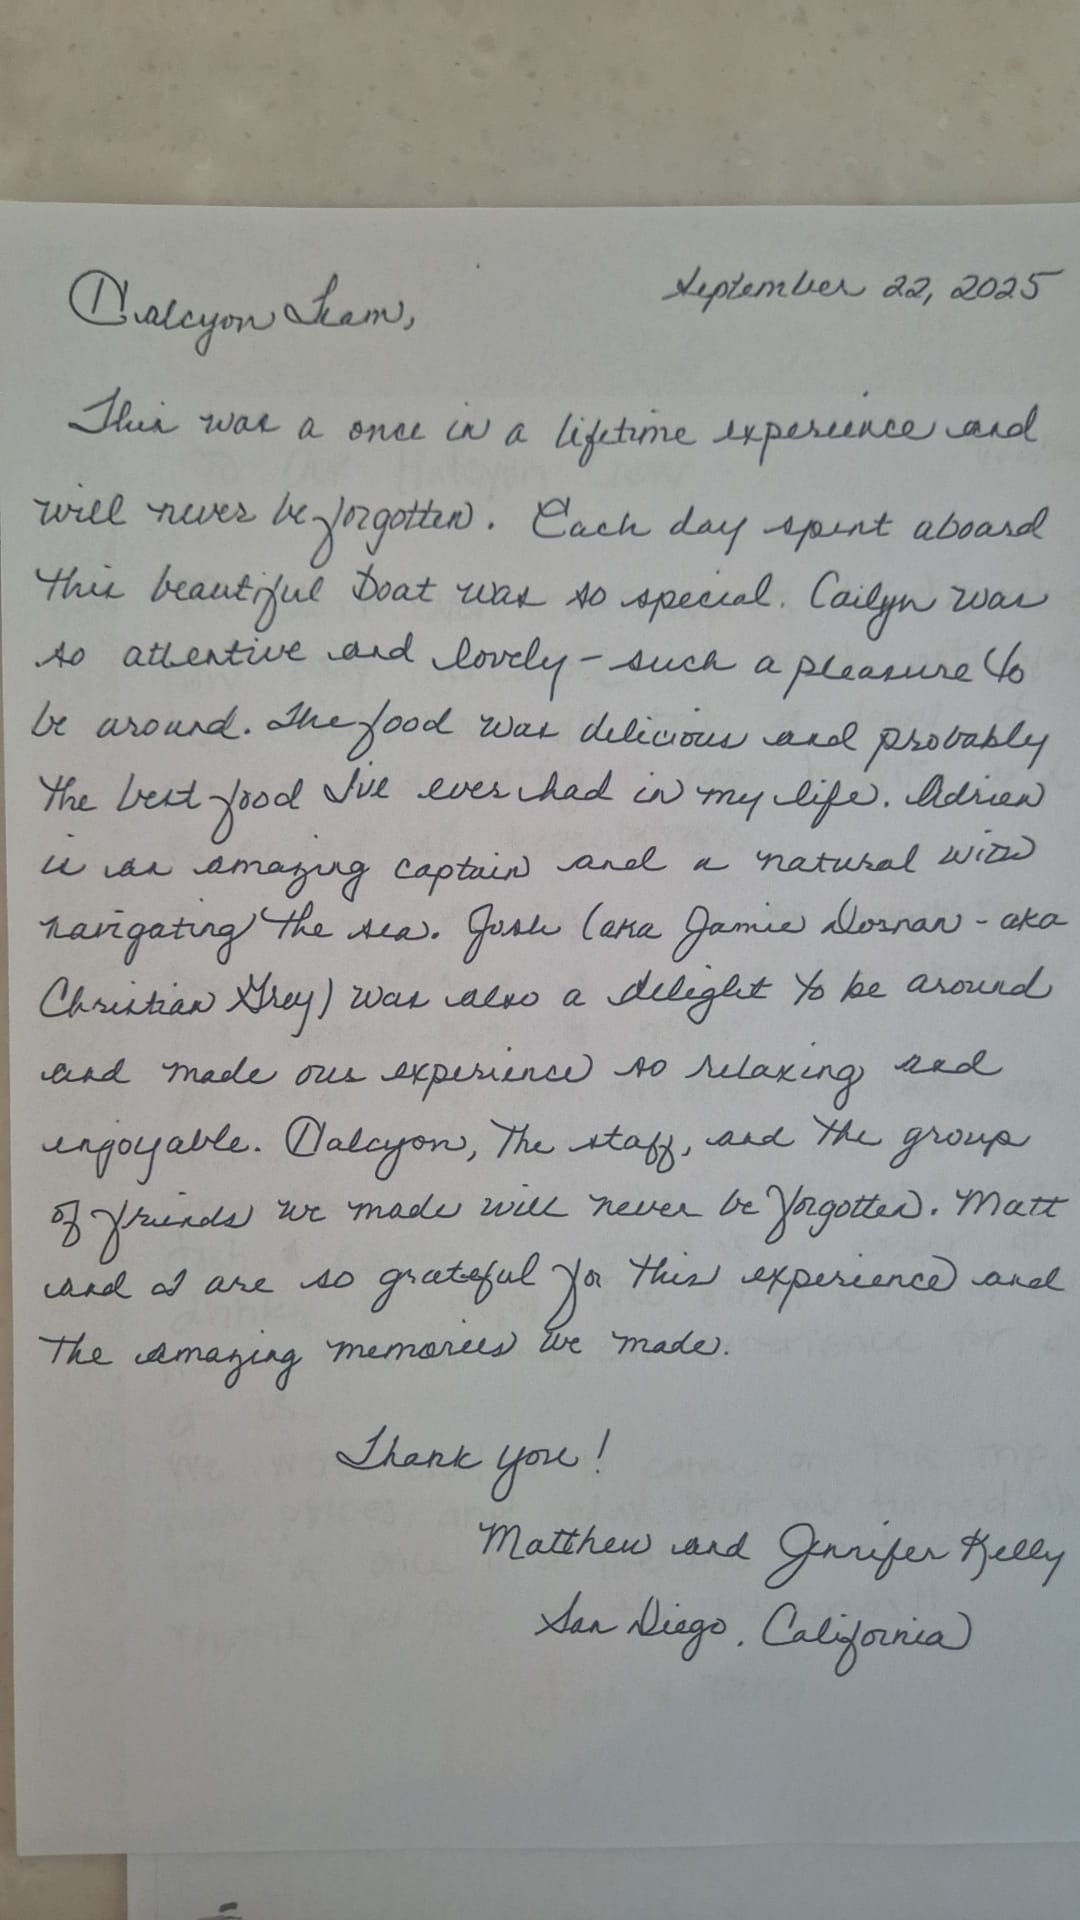 September 22, 2025
Halcyon Team,
This was a once in a lifetime experience and
will never be forgotten. Each day spent aboard
this beautiful boat was so special. Cailyn was
so attentive and lovely - such a pleasure to
be around. The food was delicious and probably
the best food I've ever had in my life. Adrien
is an amazing captain and a natural with
navigating the sea. Josh (aka Jamie Dornan - aka
Christian Grey) was also a delight to be around
and made our experience so relaxing and
enjoyable. Halcyon, the staff, and the group
of friends we made will never be forgotten. Matt
and I are so grateful for this experience and
the amazing memories we made.
Thank you!
Matthew and Jennifer Kelly
San Diego, California